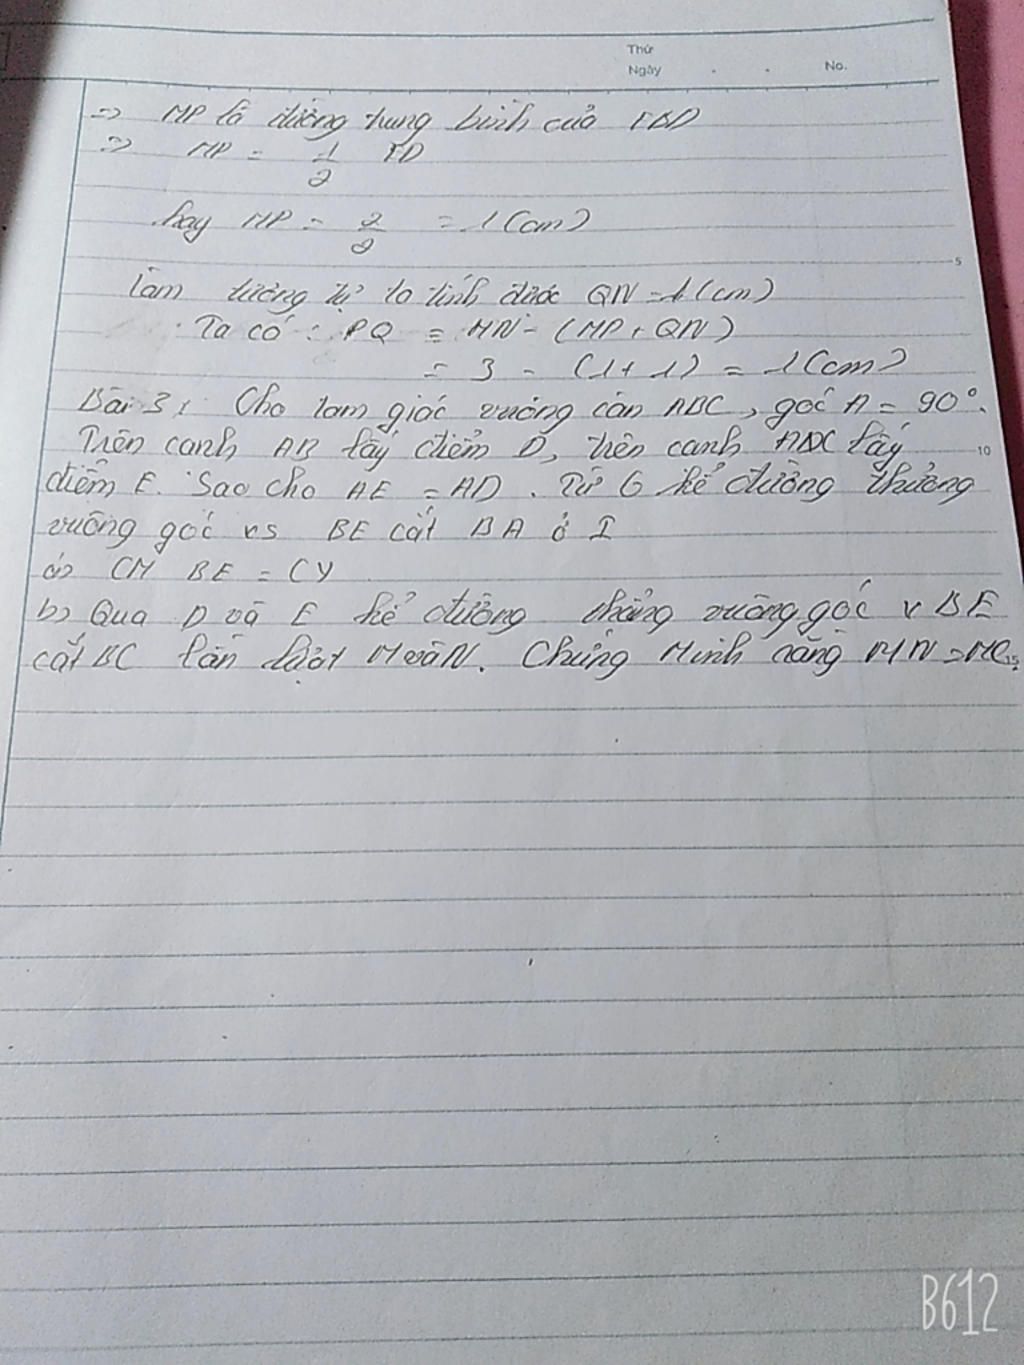 Thứ
Ngày . . No.
=> MP là đường trung bình của EBD
=> MP = 1/2 ED
hay MP = 2/2 = 1 (cm)
5
Làm tương tự ta tính được QN = 1 (cm)
Ta có : PQ = MN - (MP + QN)
= 3 - (1+1) = 1 (cm)
Bài 3: Cho tam giác vuông cân ABC, góc A = 90°.
Trên cạnh AB lấy điểm D, trên cạnh lấy
10
điểm E. Sao cho AE = AD. Từ C kẻ đường thẳng
vuông góc vs BE cắt BA ở I
a) CM BE = CY
b) Qua D và E kẻ đường thẳng vuông góc v BE
cắt BC lần lượt M và N. Chứng Minh rằng MN = MC.
15
B612